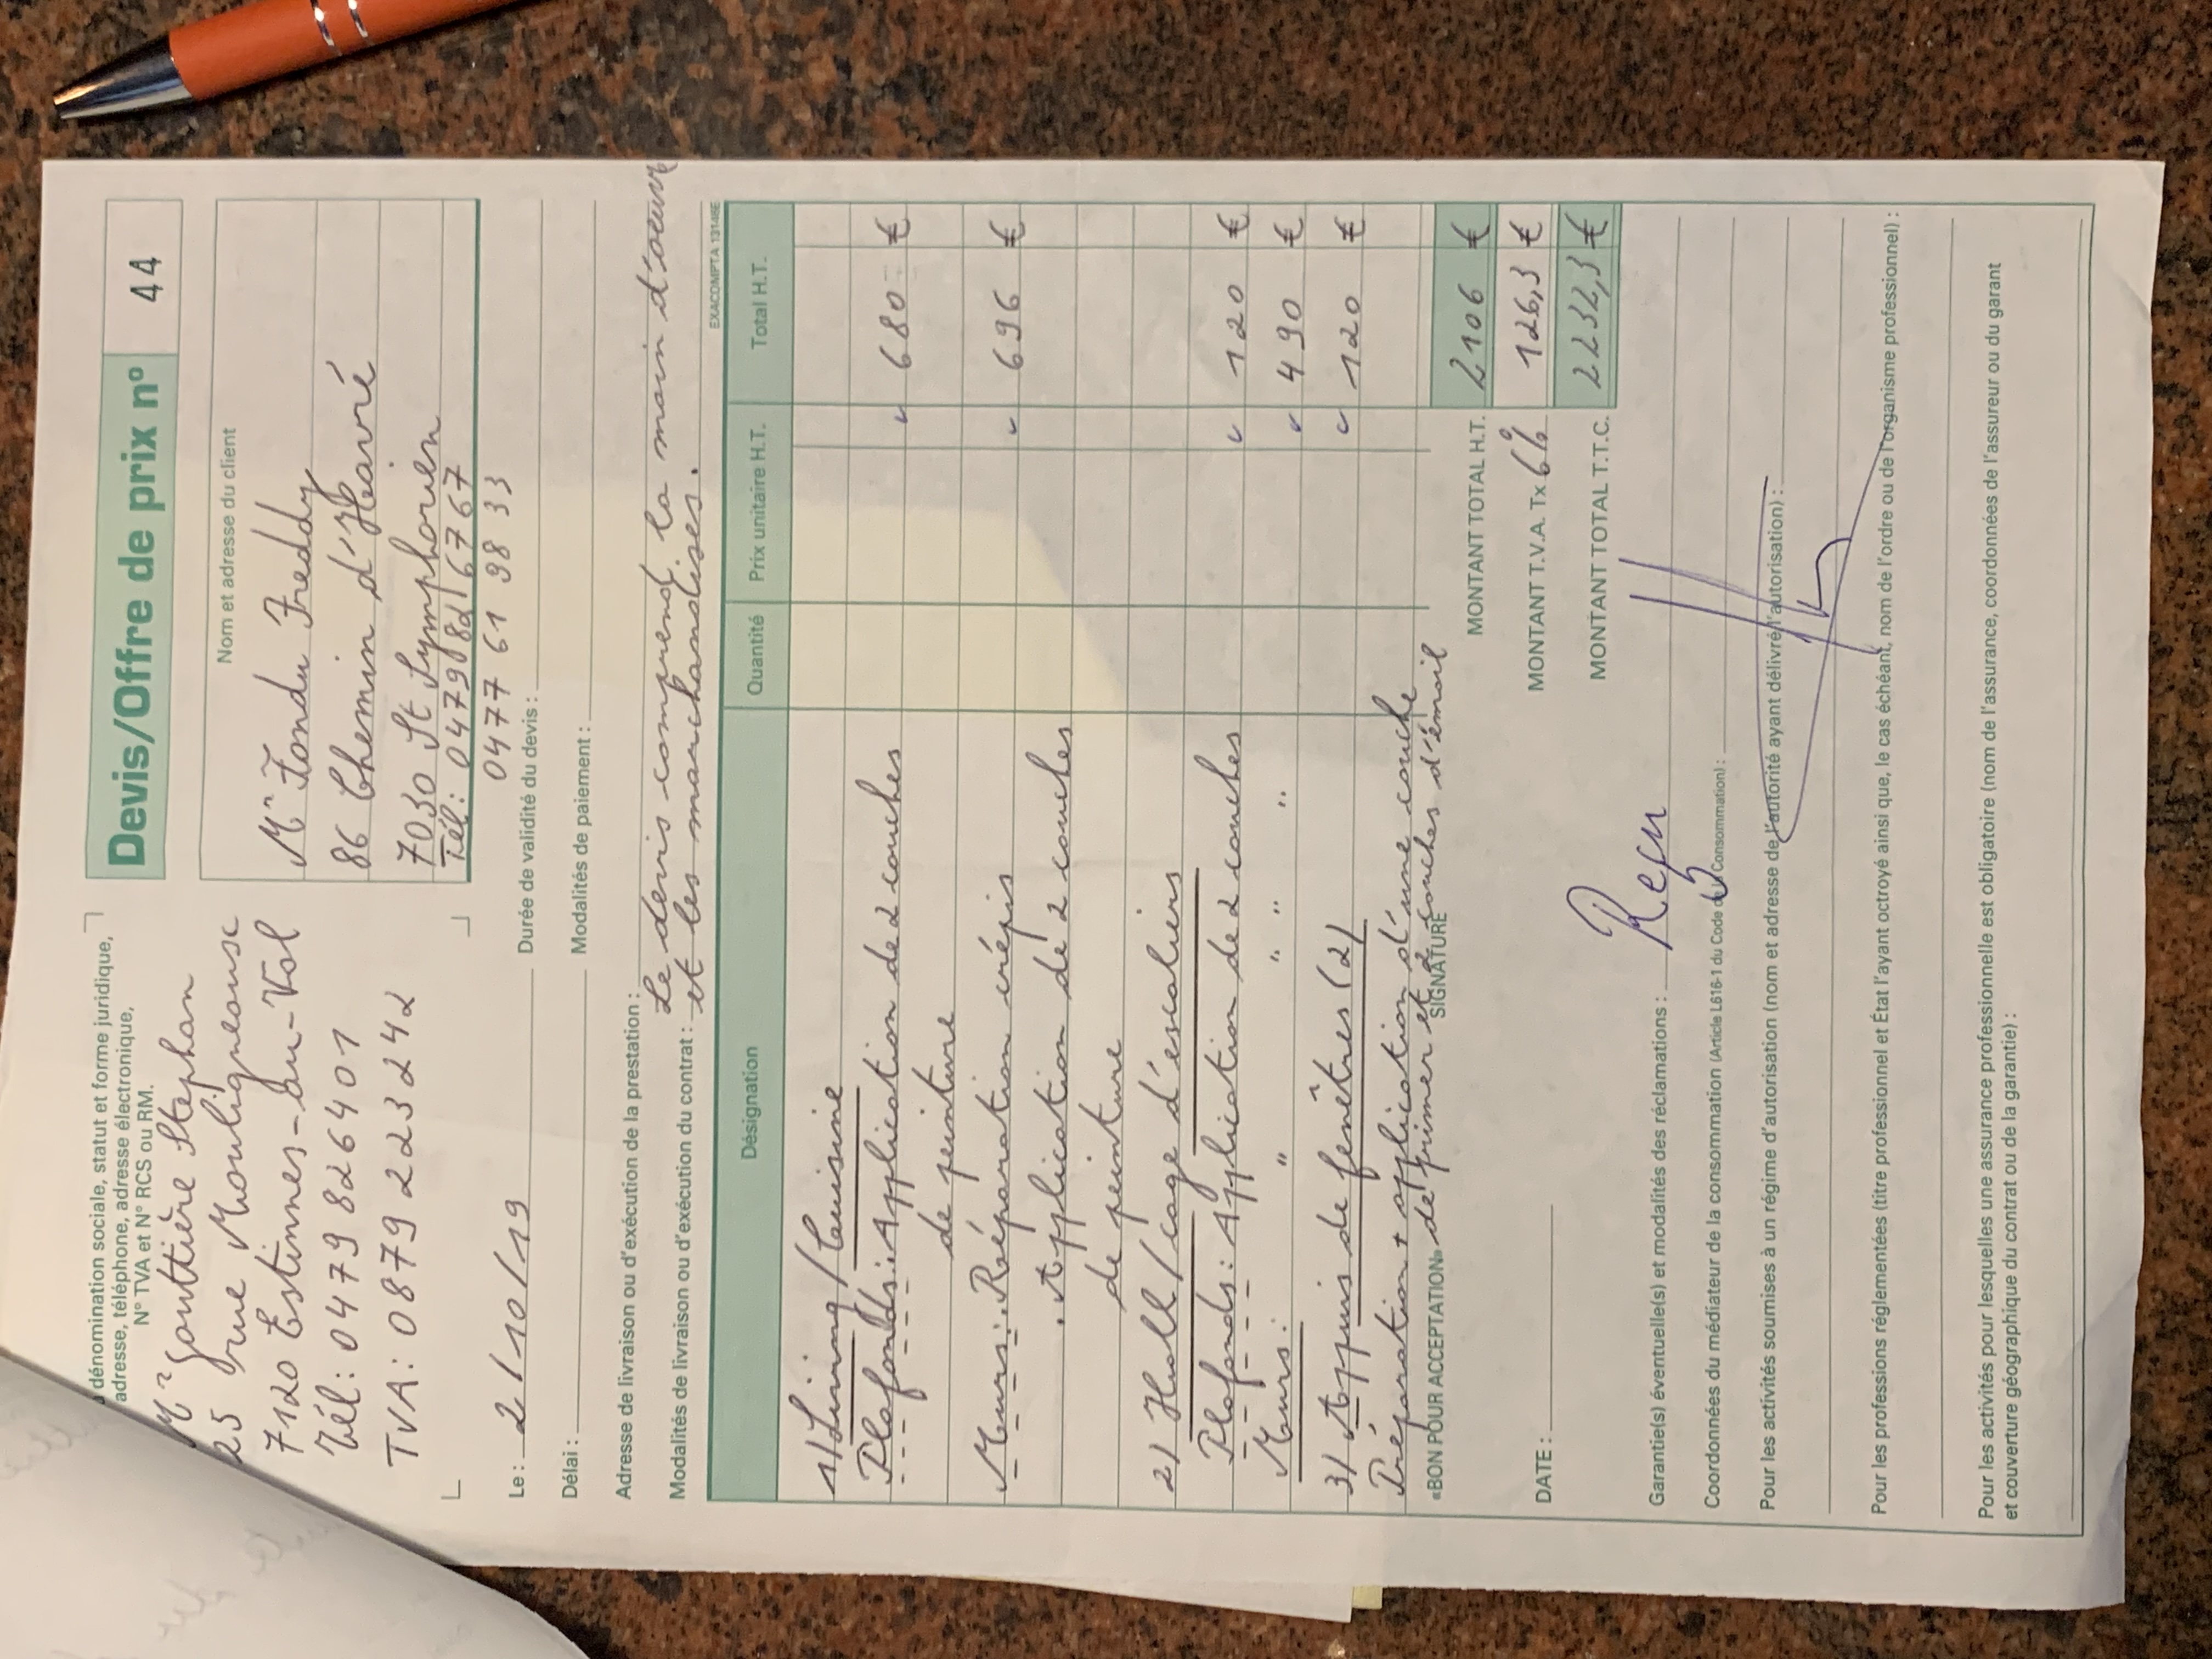 dénomination sociale, statut et forme juridique,
adresse, téléphone, adresse électronique,
N° TVA et N° RCS ou RM.
Mr Gouttière Stephan
25 rue Mouligneause
7120 Estinnes-au-Val
Tél: 0479826401
TVA: 0879223242
Devis/Offre de prix n° 44
Nom et adresse du client
Mr Fondu Freddy
86 Chemin d'Havré
7030 St Symphorien
Tél: 0479 82 67 67
0477 61 98 33
Le : 2/10/19
Durée de validité du devis :
Délai :
Modalités de paiement :
Adresse de livraison ou d'exécution de la prestation :
Le devis comprend la main d'oeuvre
Modalités de livraison ou d'exécution du contrat : et les marchandises.
EXACOMPTA 13148E
Désignation Quantité Prix unitaire H.T. Total H.T.
1/ Living / Cuisine
Plafonds: Application de 2 couches 680 €
de peinture
Murs: . Réparation crépis 696 €
. Application de 2 couches
de peinture
2/ Hall / cage d'escaliers
Plafonds: Application de 2 couches 120 €
Murs: " " " " 490 €
3/ Appuis de fenêtres (2) 120 €
Préparation + application d'une couche
de primer et 2 couches d'émail
«BON POUR ACCEPTATION»
SIGNATURE
MONTANT TOTAL H.T. 2106 €
DATE :
MONTANT T.V.A. Tx 6% 126,3 €
MONTANT TOTAL T.T.C. 2232,3 €
Reçu
Garantie(s) éventuelle(s) et modalités des réclamations :
Coordonnées du médiateur de la consommation (Article L616-1 du Code de la Consommation) :
Pour les activités soumises à un régime d'autorisation (nom et adresse de l'autorité ayant délivré l'autorisation) :
Pour les professions réglementées (titre professionnel et État l'ayant octroyé ainsi que, le cas échéant, nom de l'ordre ou de l'organisme professionnel) :
Pour les activités pour lesquelles une assurance professionnelle est obligatoire (nom de l'assurance, coordonnées de l'assureur ou du garant
et couverture géographique du contrat ou de la garantie) :